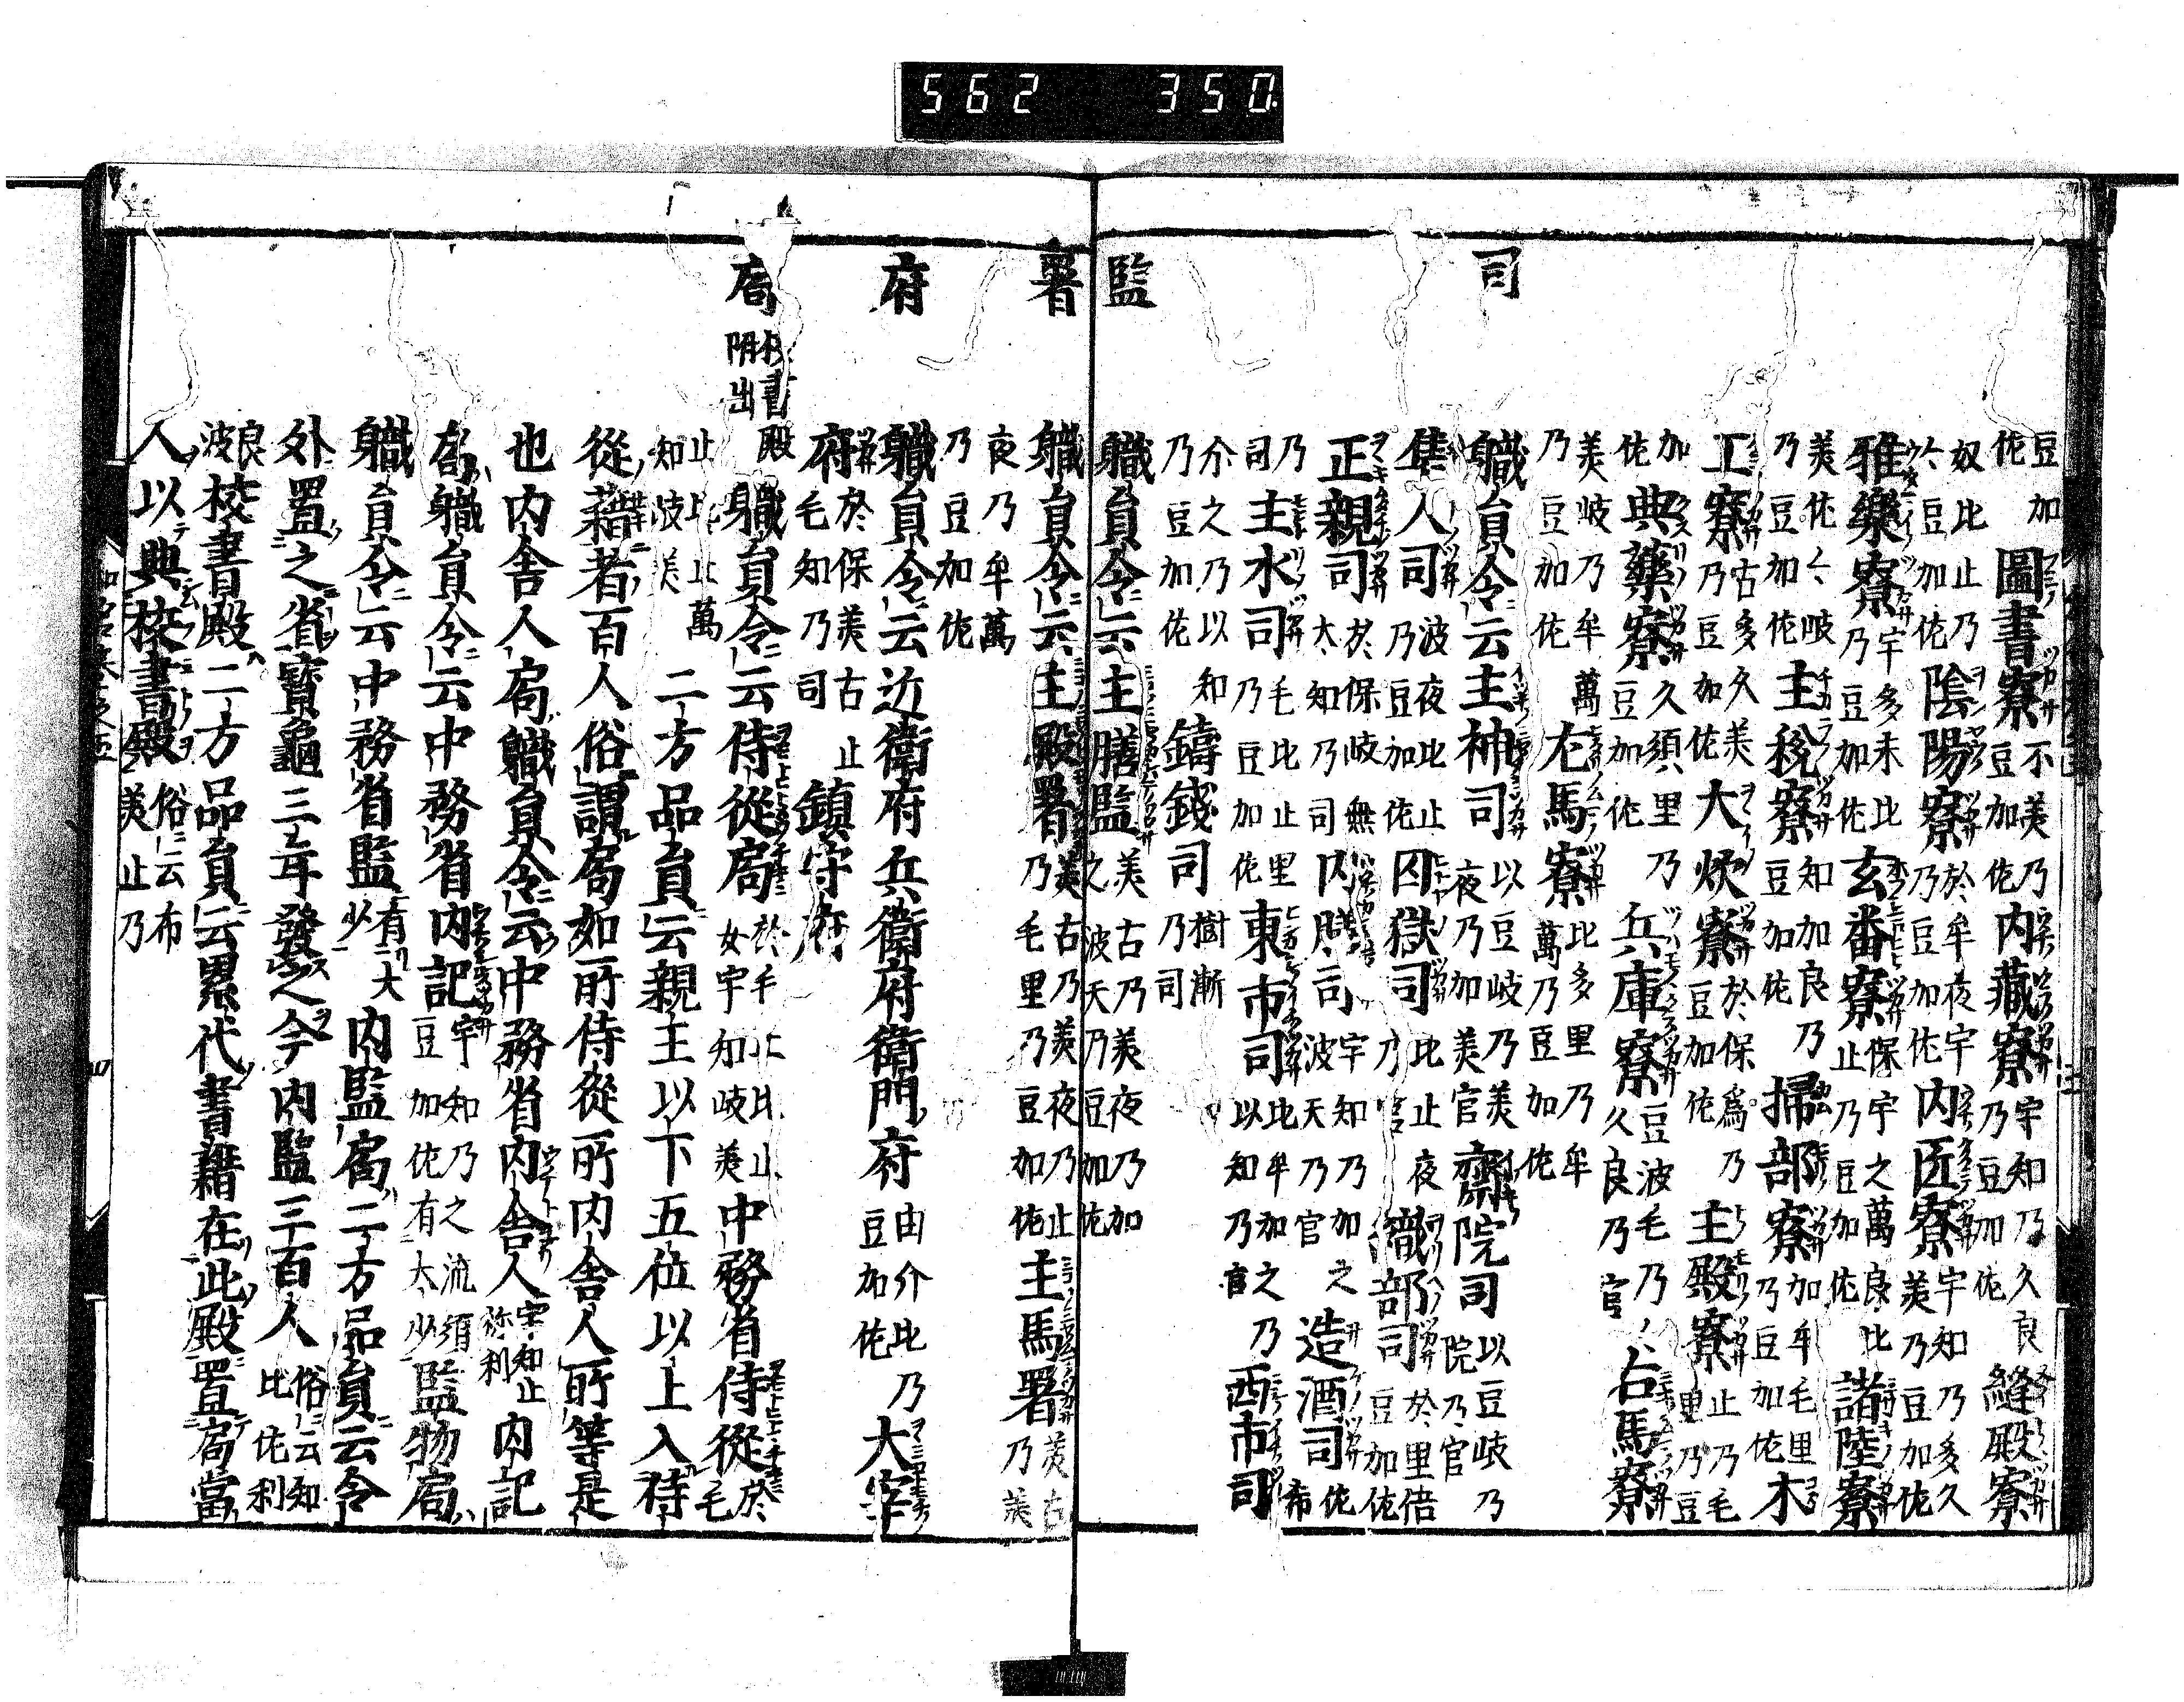 562 350
豆加佐 圖書寮 不美乃豆加佐 内藏寮 宇知乃久良乃豆加佐 縫殿寮
奴比止乃於豆加佐 陰陽寮 於牟夜宇乃豆加佐 内匠寮 宇知乃多久美乃豆加佐
雅樂寮 宇多末比乃豆加佐 玄蕃寮 保宇之萬良比止乃豆加佐 諸陵寮
美佐々岐乃豆加佐 主稅寮 知加良乃豆加佐 掃部寮 加牟毛里乃豆加佐 木
工寮 古多久美乃豆加佐 大炊寮 於保爲乃豆加佐 主殿寮 止乃毛里乃豆
加佐 典藥寮 久須里乃豆加佐 兵庫寮 豆波毛乃乃久良乃官 右馬寮
美岐乃牟萬乃豆加佐 左馬寮 比多里乃牟萬乃豆加佐
司
職員令云主神司 以豆岐乃美夜乃加美官 齋院司 以豆岐乃院乃官
隼人司 波夜比止乃豆加佐 囚獄司 比止夜乃官 織部司 於里倍豆加佐
正親司 於保岐無太知乃司 内膳司 宇知乃加之波天乃官 造酒司 佐希
乃司 主水司 毛比止里乃豆加佐 東市司 比牟加之乃以知乃官 西市司
介之乃以知乃豆加佐 鑄錢司 樹漸乃司
監
職員令云主膳監 美古乃美夜乃加之波天乃豆加佐
署
職員令云主殿署 美古乃美夜乃止乃毛里乃豆加佐 主馬署 美古乃美
夜乃牟萬乃豆加佐
府
職員令云近衛府兵衛府衛門府 由介比乃豆加佐 大宰
府 於保美古止毛知乃司 鎮守府
局 校書殿附出
職員令云侍從局 於毛止比止女宇知岐美 中務省侍從 於毛
止比止萬知岐美 二方品員云親王以下五位以上入侍
從藉者百人俗謂局如所侍從所内舍人所等是
也内舍人局職員令云中務省内舍人 宇知止祢利 内記
局職員令云中務省内記 宇知乃之流須豆加佐有大少 監物局
職員令云中務省監 有大少 内監局二方品員云令
外置之省寶龜三年發之今内監三百人 俗云知比佐利
良波 校書殿二方品員云累代書籍在此殿置局當
人以典校書殿 俗云布美止乃